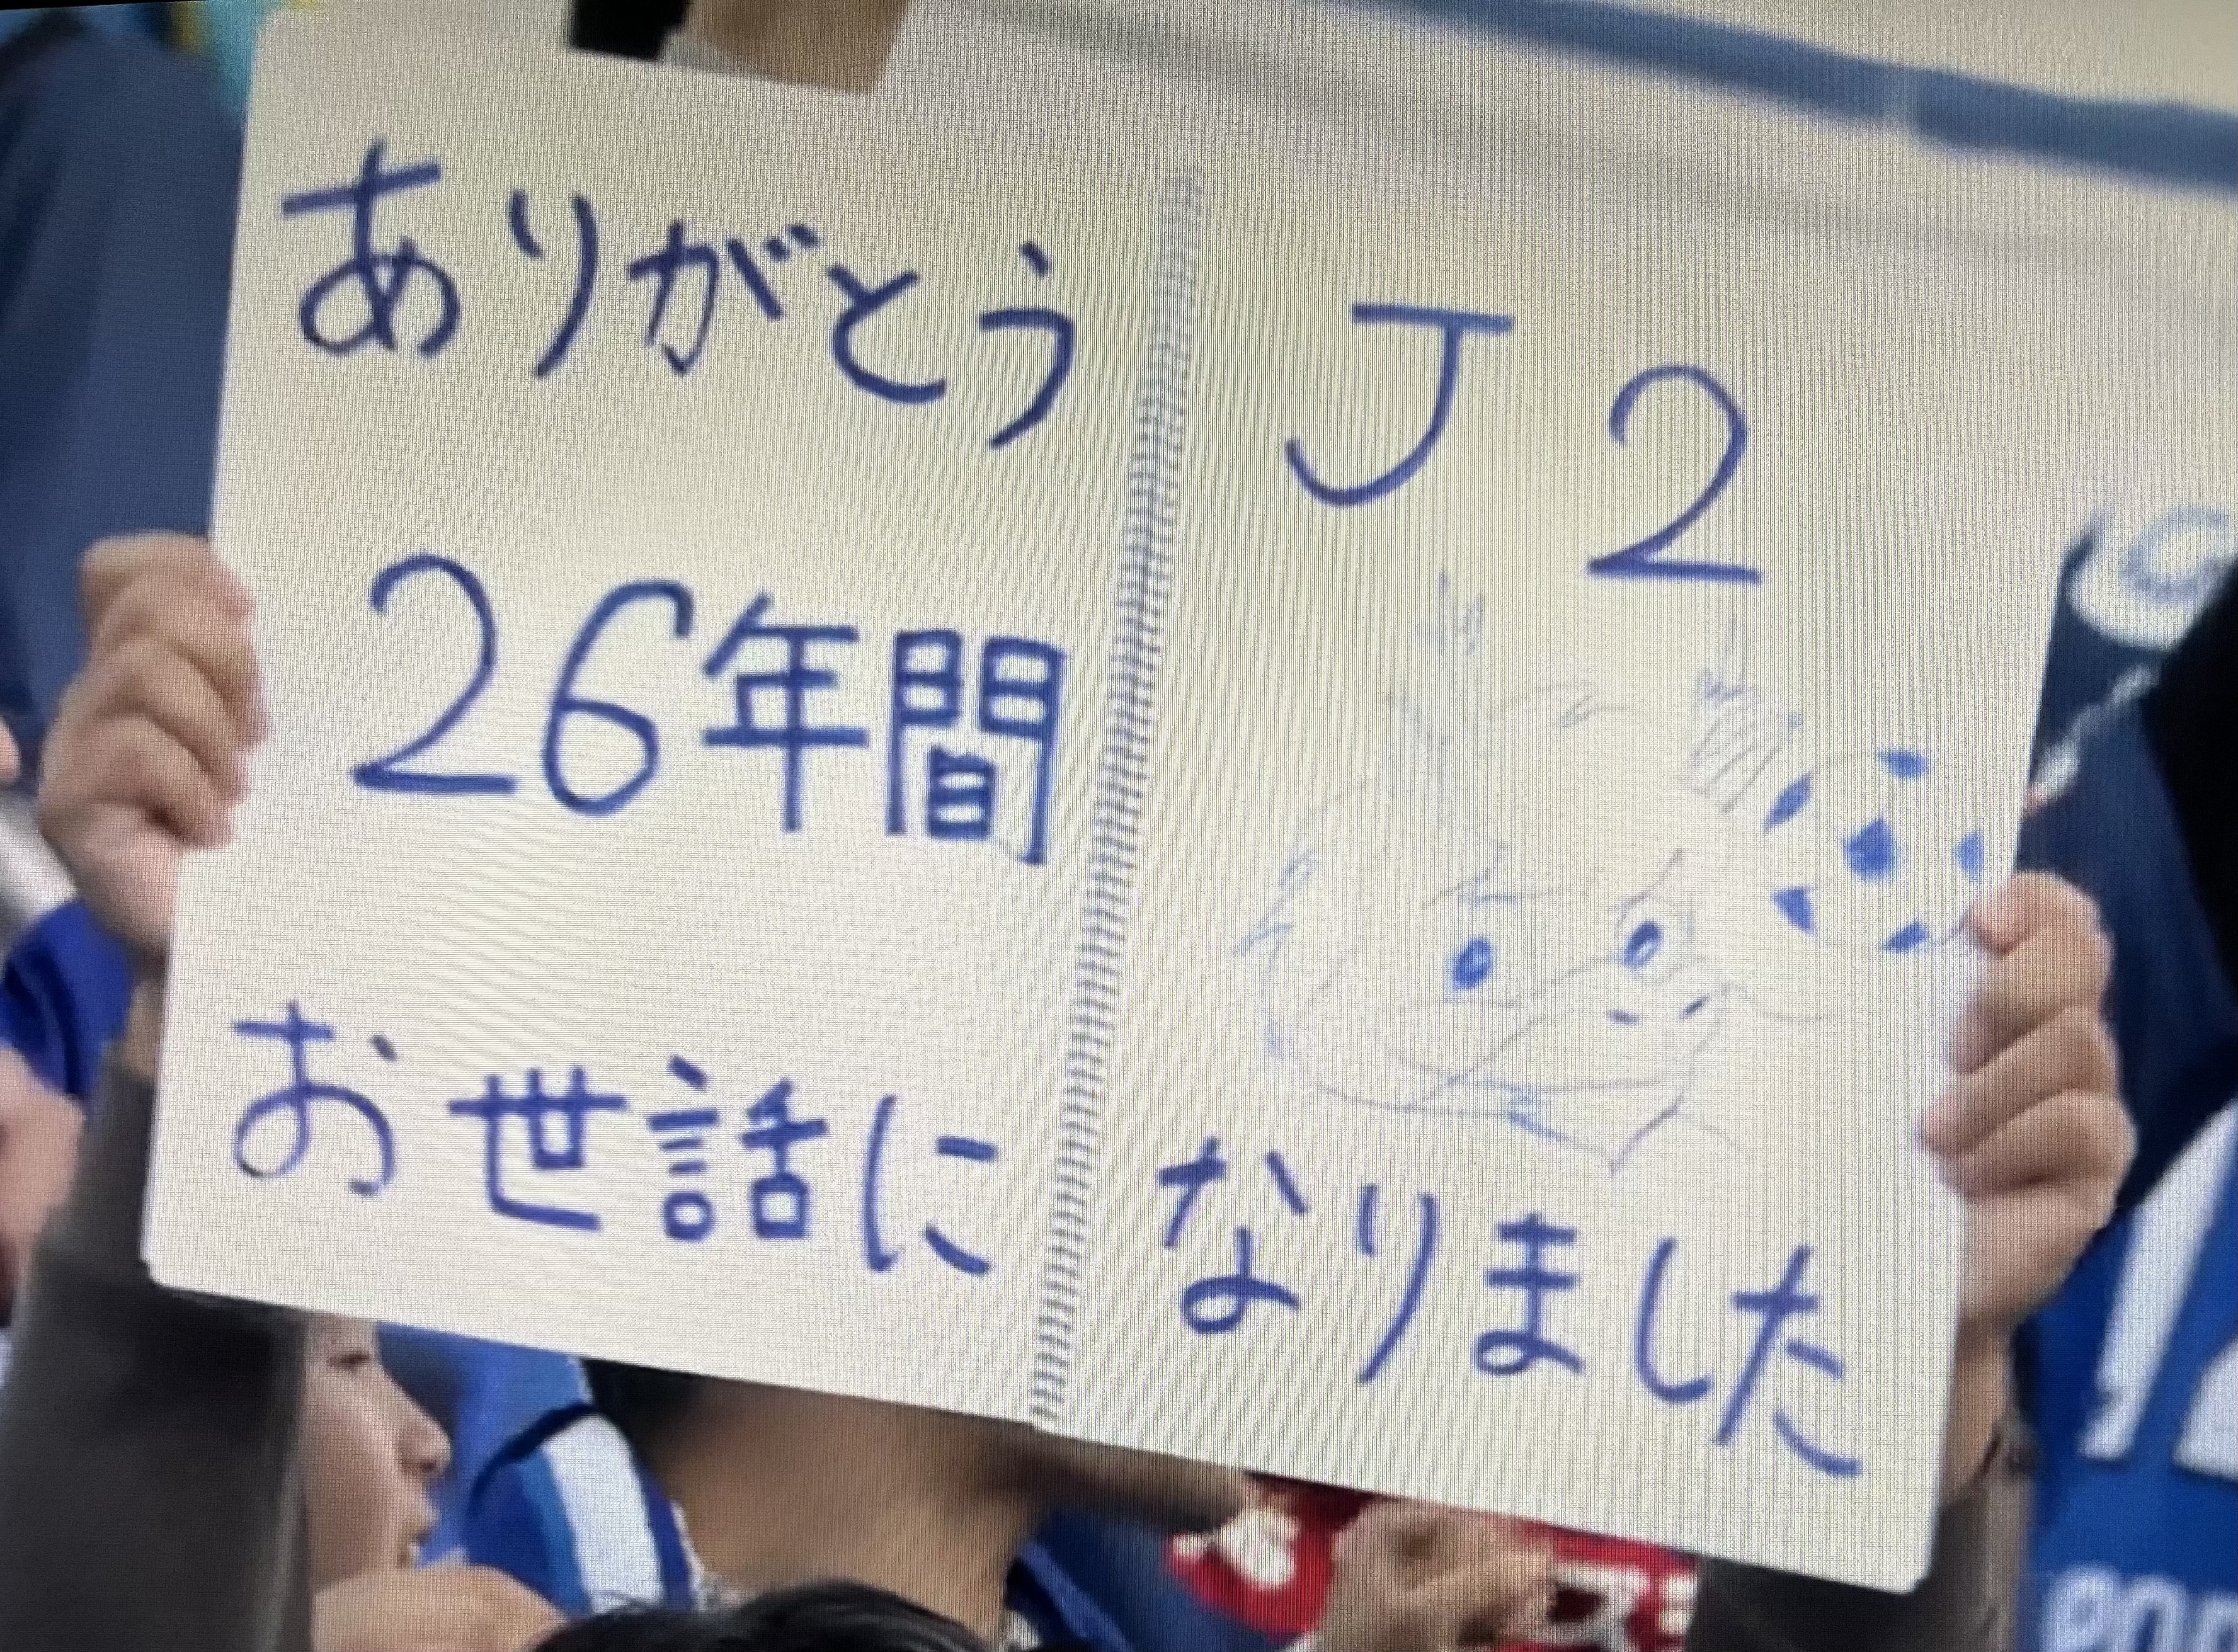 ありがとう J2
26年間
お世話に なりました